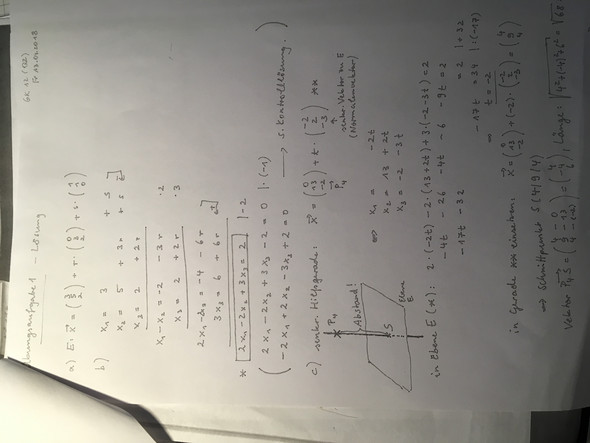 GK 12 (Q2)
Übungsaufgabe 1 – Lösung
a) E: x⃗ = (3 5 2) + r · (0 3 2) + s · (1 1 0)
b) x₁ = 3 + s
x₂ = 5 + 3r + s
x₃ = 2 + 2r
x₁ - x₂ = -2 - 3r ·2
x₃ = 2 + 2r ·3
2x₁ - 2x₂ = -4 - 6r
3x₃ = 6 + 6r
* 2x₁ - 2x₂ + 3x₃ = 2 |-2
( 2x₁ - 2x₂ + 3x₃ - 2 = 0 |·(-1)
-2x₁ + 2x₂ - 3x₃ + 2 = 0 → s. Kontrolllösung. )
c) senkr. Hilfsgerade: x⃗ = (0 13 -2) + t · (-2 2 -3) **
P₄
senkr. Vektor zu E
(Normalenvektor)
P₄
Abstand!
S
Ebene E
⇔ x₁ = -2t
x₂ = 13 + 2t
x₃ = -2 - 3t
in Ebene E (*): 2·(-2t) - 2·(13+2t) + 3·(-2-3t) = 2
-4t - 26 - 4t - 6 - 9t = 2
-17t - 32 = 2 |+32
-17t = 34 |:(-17)
⇔ t = -2
in Gerade ** einsetzen: x⃗ = (0 13 -2) + (-2) · (-2 2 -3) = (4 9 4)
⇒ Schnittpunkt S(4|9|4)
Vektor P₄S = (4 - 0 9 - 13 4 - (-2)) = (4 -4 6), Länge: √4²+(-4)²+6² = √68